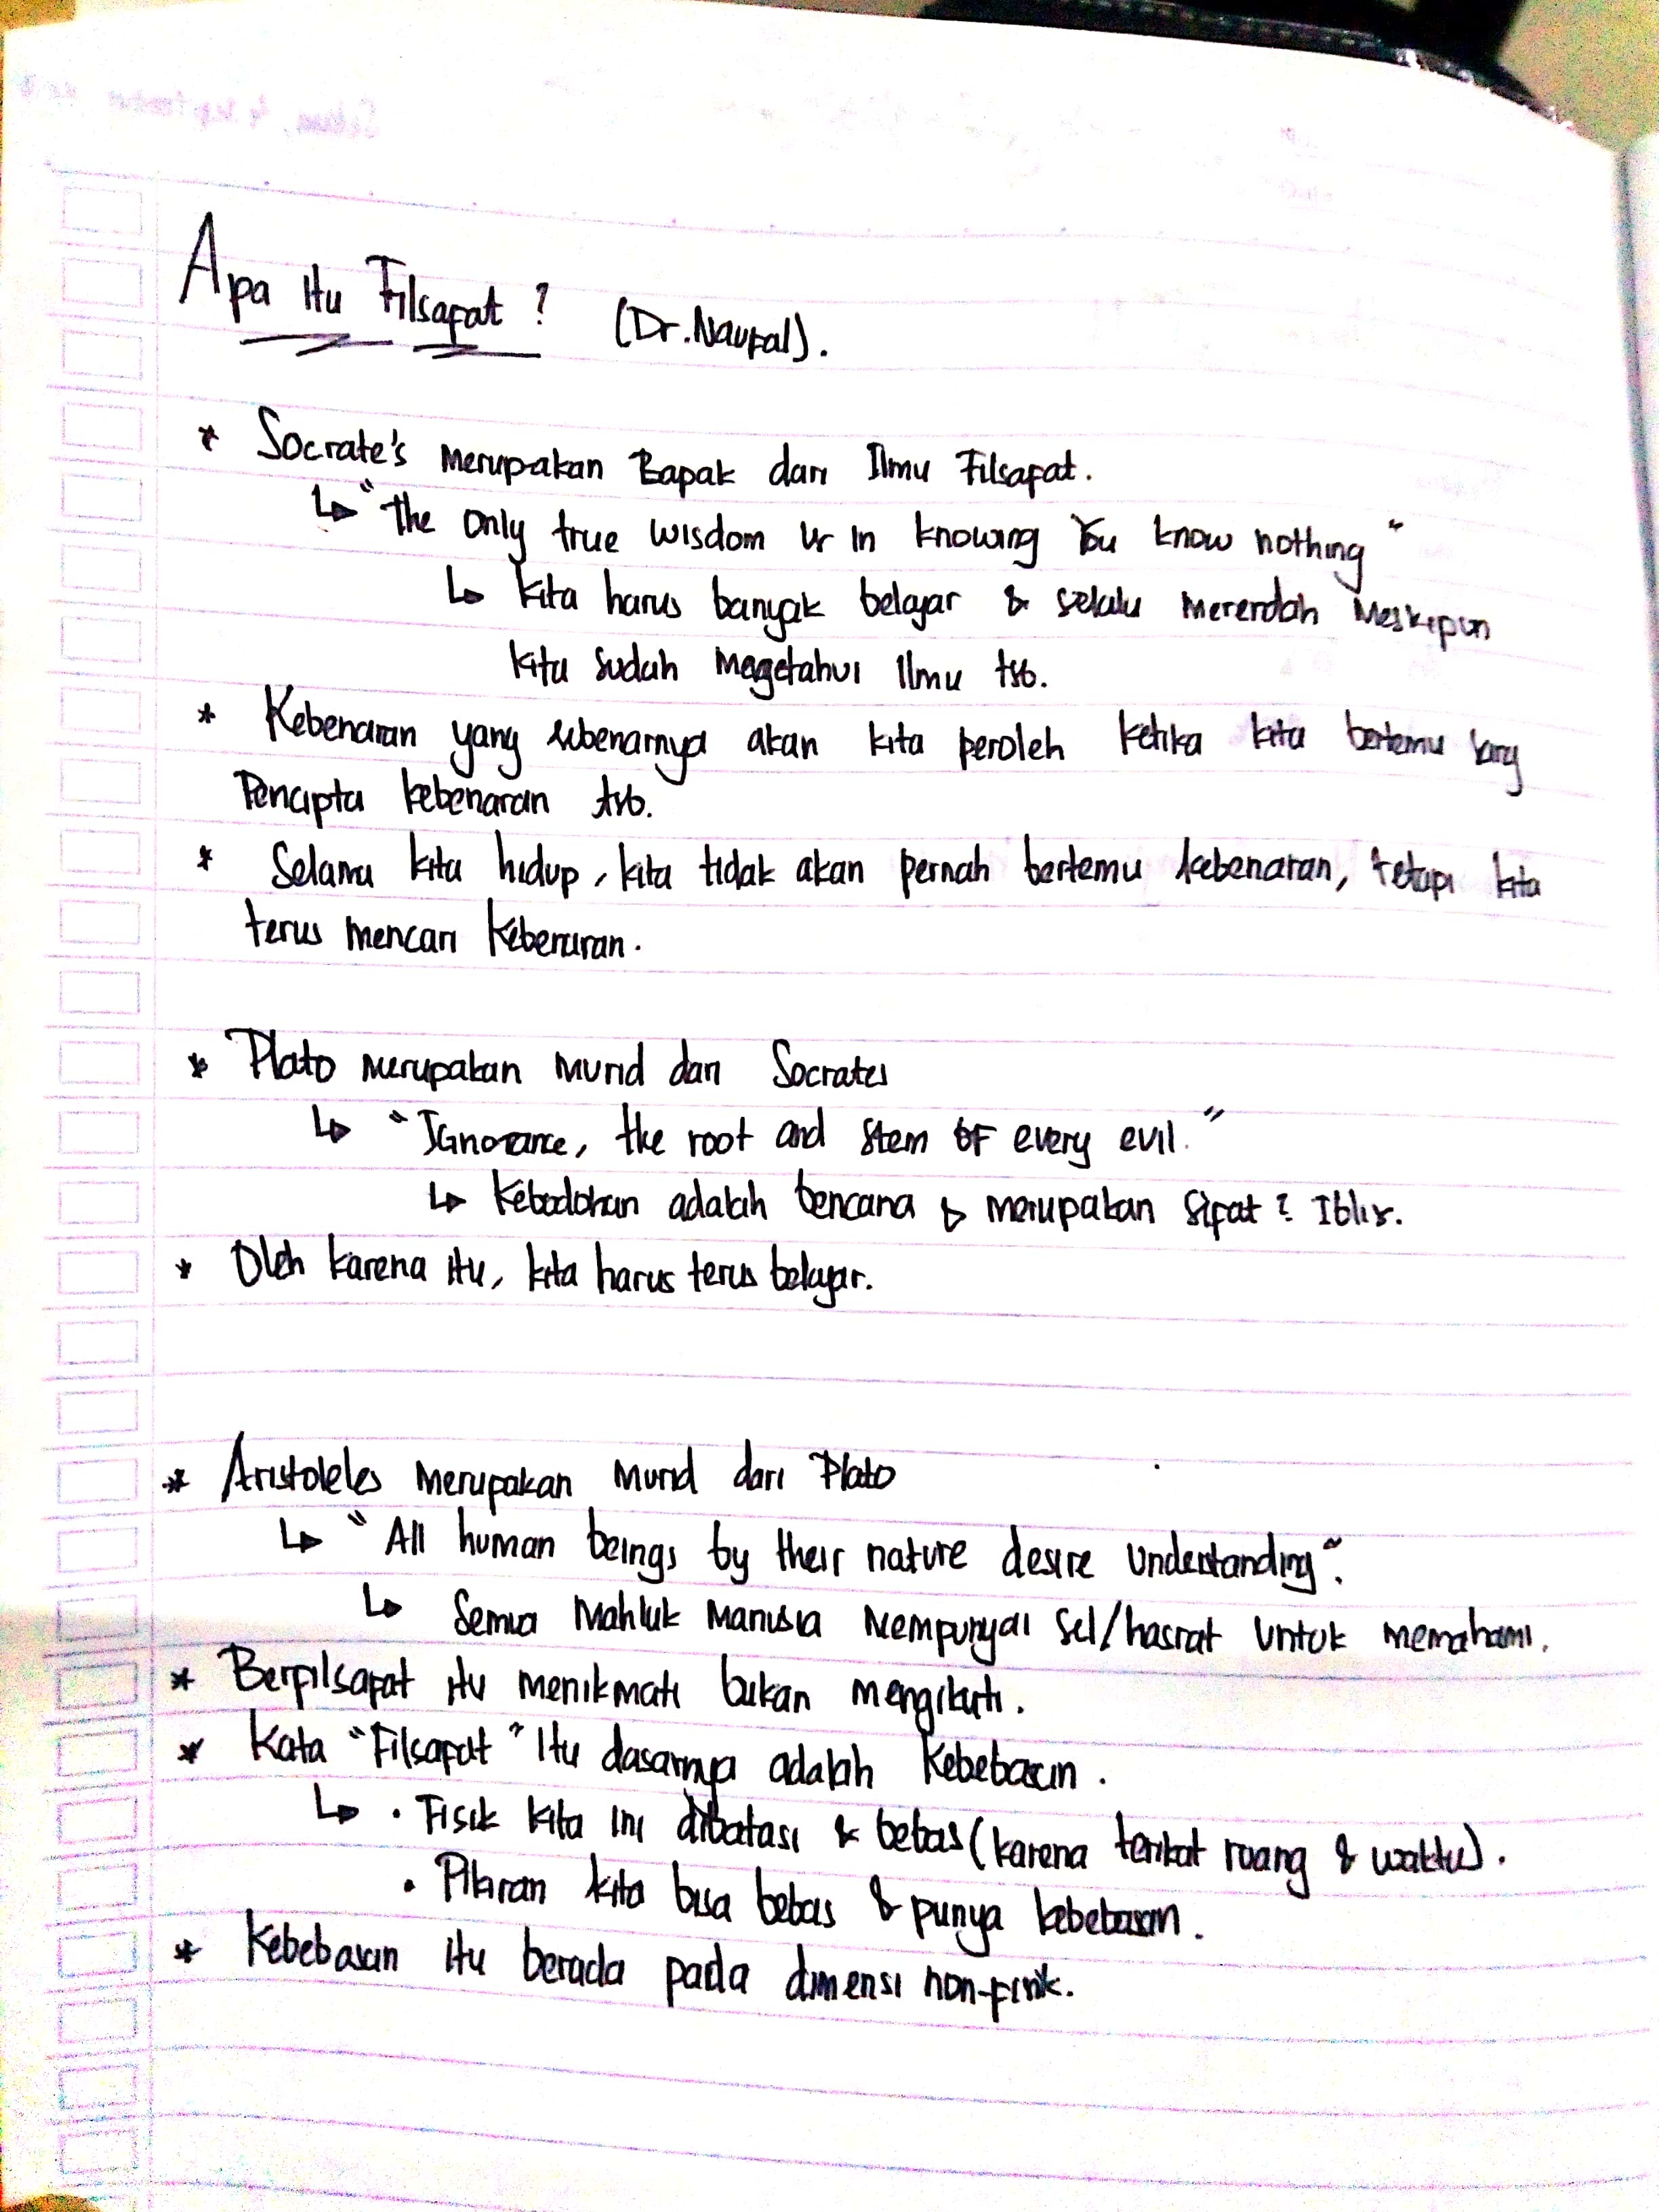 Apa itu Filsafat ? (Dr. Naufal).
* Socrate's merupakan Bapak dari Ilmu Filsafat.
↳ "the only true wisdom is in knowing You know nothing"
↳ kita harus banyak belajar & selalu merendah meskipun
kita sudah megetahui Ilmu tsb.
* Kebenaran yang sebenarnya akan kita peroleh ketika kita bertemu
Pencipta kebenaran tsb.
* Selama kita hidup, kita tidak akan pernah bertemu kebenaran, tetapi kita
terus mencari kebenaran.
* Plato merupakan murid dari Socrates
↳ "Ignorance, the root and stem OF every evil."
↳ Kebodohan adalah bencana & merupakan sifat² Iblis.
* Oleh karena itu, kita harus terus belajar.
* Aristoteles merupakan murid dari Plato
↳ "All human beings by their nature desire understanding".
↳ Semua Mahluk Manusia Mempunyai sel/hasrat untuk memahami.
* Berfilsafat itu menikmati bukan mengikuti.
* Kata "Filsafat" Itu dasarnya adalah Kebebasan.
↳ • Fisik kita ini dibatasi & bebas (karena terikat ruang & waktu).
• Pikiran kita bisa bebas & punya kebebasan.
* Kebebasan itu berada pada dimensi non-fisik.